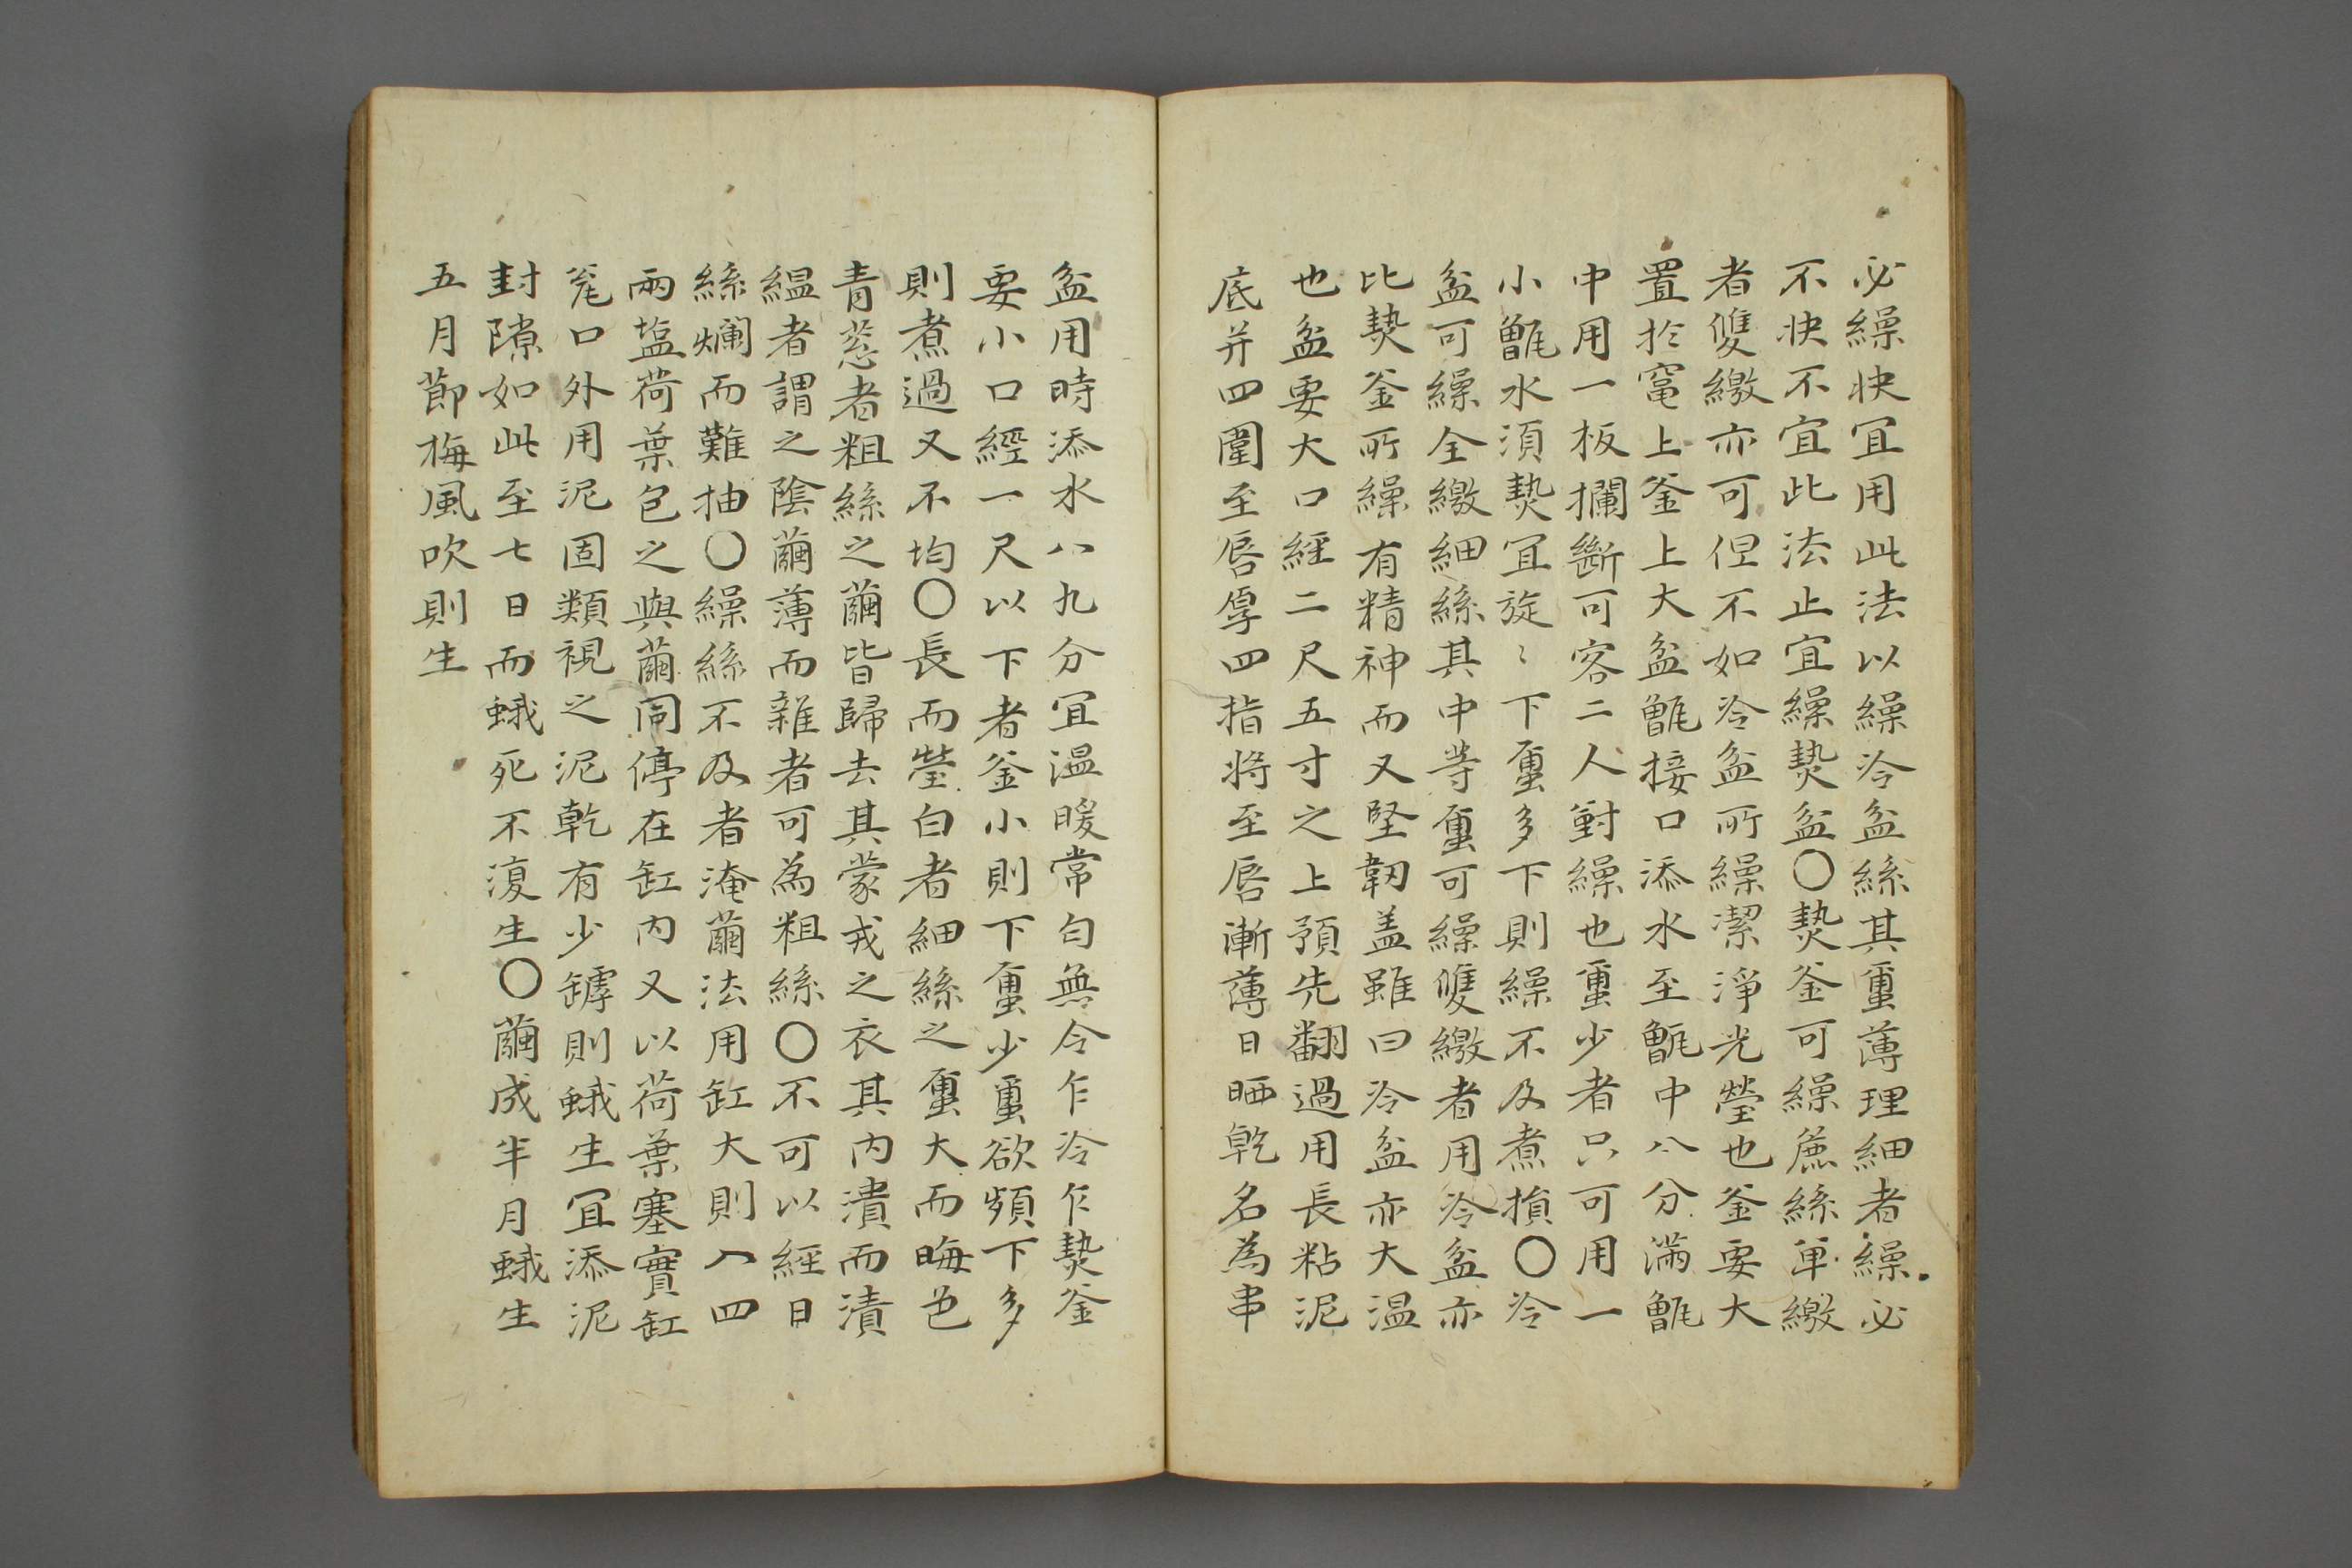 必繰快冝用此法以繰冷盆絲其蠒薄理細者繰必
不快不宜此法止宜繰𤍠盆〇𤍠釜可繰麄絲单繳
者雙繳亦可但不如冷盆所繰潔淨光瑩也釜要大
置於竃上釜上大盆甑接口添水至甑中八分滿甑
中用一板攔斷可容二人對繰也蠒少者只可用一
小甑水須𤍠冝旋〻下蠒多下則繰不及煮損〇冷
盆可繰全繳細絲其中等蠒可繰雙繳者用冷盆亦
比𤍠釜所繰有精神而又堅韌盖雖曰冷盆亦大温
也盆要大口經二尺五寸之上預先翻過用長粘泥
底并四圍至唇厚四指將至唇漸薄日晒乾名為串
盆用時添水八九分冝温暖常匀無令乍冷乍𤍠釜
要小口經一尺以下者釜小則下蠒少蠒欲頻下多
則煮過又不均〇長而瑩白者細絲之蠒大而晦色
青葱者粗絲之繭皆歸去其蒙戎之衣其内潰而漬
緼者謂之陰繭薄而雜者可為粗絲〇不可以經日
絲爛而難抽〇繰絲不及者淹繭法用缸大則入四
兩塩荷葉包之與繭同停在缸内又以荷葉塞實缸
瓮口外用泥固類視之泥乾有少罅則蛾生冝添泥
封隙如此至七日而蛾死不復生〇繭成半月蛾生
五月節梅風吹則生